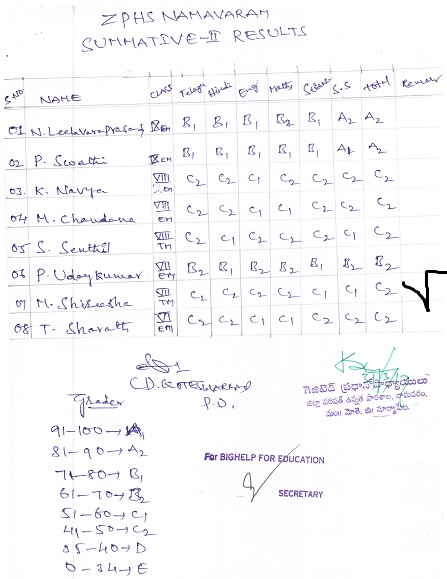 ZPHS NAMAVARAM
SUMMATIVE-II RESULTS
S.No NAME CLASS Telugu Hindi Eng Maths Science S.S Total Remar
01 N. Leelavaraprasad IX EM B1 B1 B1 B2 B1 A2 A2
02 P. Swathi IX EM B1 B1 B1 B1 B1 A2 A2
03. K. Navya VIII EM C2 C2 C1 C2 C2 C2 C2
04 M. Chandana VIII EM C2 C2 C1 C1 C2 C2 C2
05 S. Senthil VIII TM C2 C1 C2 C2 C1 C2 C2
06 P. Udaykumar VII EM B2 B1 B2 B2 B1 B2 B2
07 M. Shireesha VII TM C2 C2 C2 C2 C1 C1 C2
08 T. Sharath VI EM C2 C2 C1 C1 C2 C2 C2
C.D. KOTESWARRAO
P.D.
గెజిటెడ్ ప్రధానోపాధ్యాయులు
జిల్లా పరిషత్ ఉన్నత పాఠశాల, నామవరం,
మం॥ మోతె, జి॥ సూర్యాపేట.
Grades
91-100→A1
81-90→A2
71-80→B1
61-70→B2
51-60→C1
41-50→C2
35-40→D
0-34→E
For BIGHELP FOR EDUCATION
SECRETARY